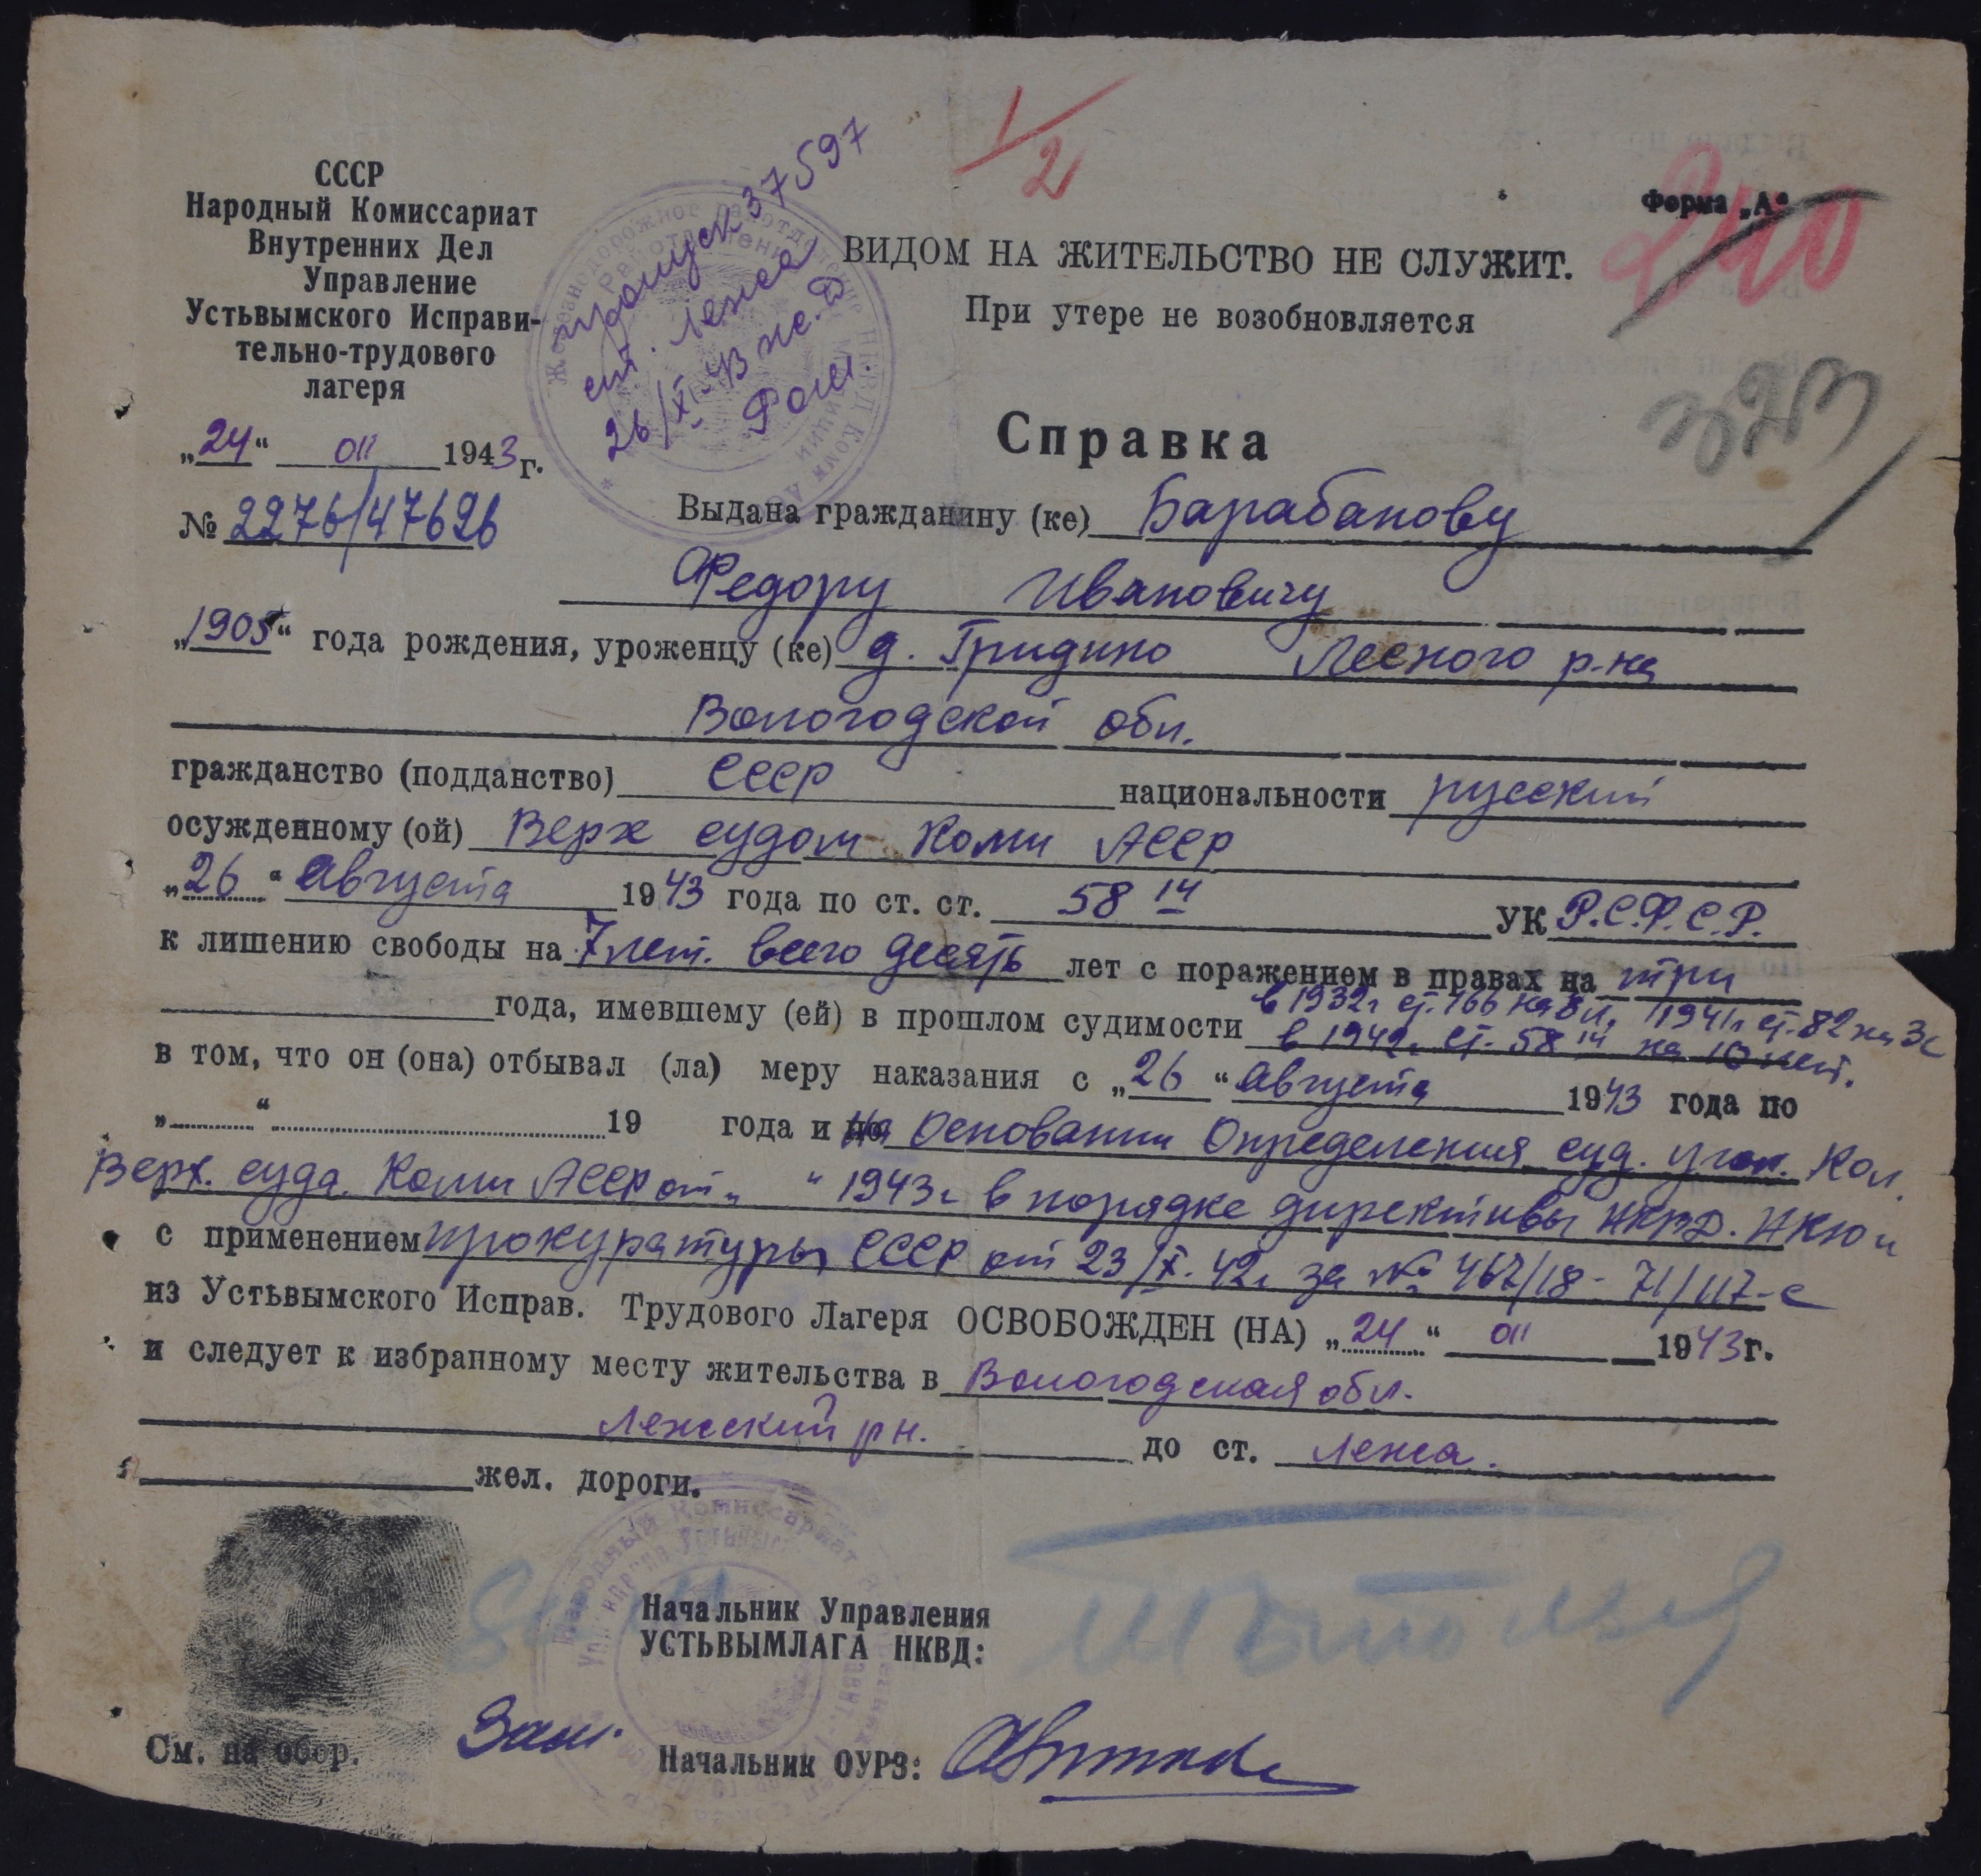 СССР
Народный Комиссариат
Внутренних Дел
Управление
Устьвымского Исправи-
тельно-трудового
лагеря
„24“ 1943 г.
№ 2276/47626
пропуск 37597
ст. Лежа
26/XI-43
1/2
Форма „А“
240
ВИДОМ НА ЖИТЕЛЬСТВО НЕ СЛУЖИТ.
При утере не возобновляется
323
Справка
Выдана гражданину (ке) Барабанову
Федору Ивановичу
„1905“ года рождения, уроженцу (ке) д. Гридино Лесного р-на
Вологодской обл.
гражданство (подданство) СССР национальности русский
осужденному (ой) Верх судом Коми АССР
„26“ Августа 1943 года по ст. ст. 58 14 УК Р.С.Ф.С.Р.
к лишению свободы на 7 лет. всего десять лет с поражением в правах на три
года, имевшему (ей) в прошлом судимости в 1932г ст. 166 на 8 л, 1941г ст. 82 на 3
в 1942г ст. 58 14 на 10 лет.
в том, что он (она) отбывал (ла) меру наказания с „26“ Августа 1943 года по
„ “ 19 года и на Основании Определения суд. угол. Кол.
Верх. суда Коми АССР от „ “ 1943г в порядке директивы НКВД. НКЮ и
с применением прокуратуры СССР от 23/X. 42г за № 467/18-71/117-с
из Устьвымского Исправ. Трудового Лагеря ОСВОБОЖДЕН (НА) „24“ 1943 г.
и следует к избранному месту жительства в Вологодская обл.
Лежский р н. до ст. Лежа.
жел. дороги.
Начальник Управления
УСТЬВЫМЛАГА НКВД:
См. на обор.
Зам. Начальник ОУРЗ: